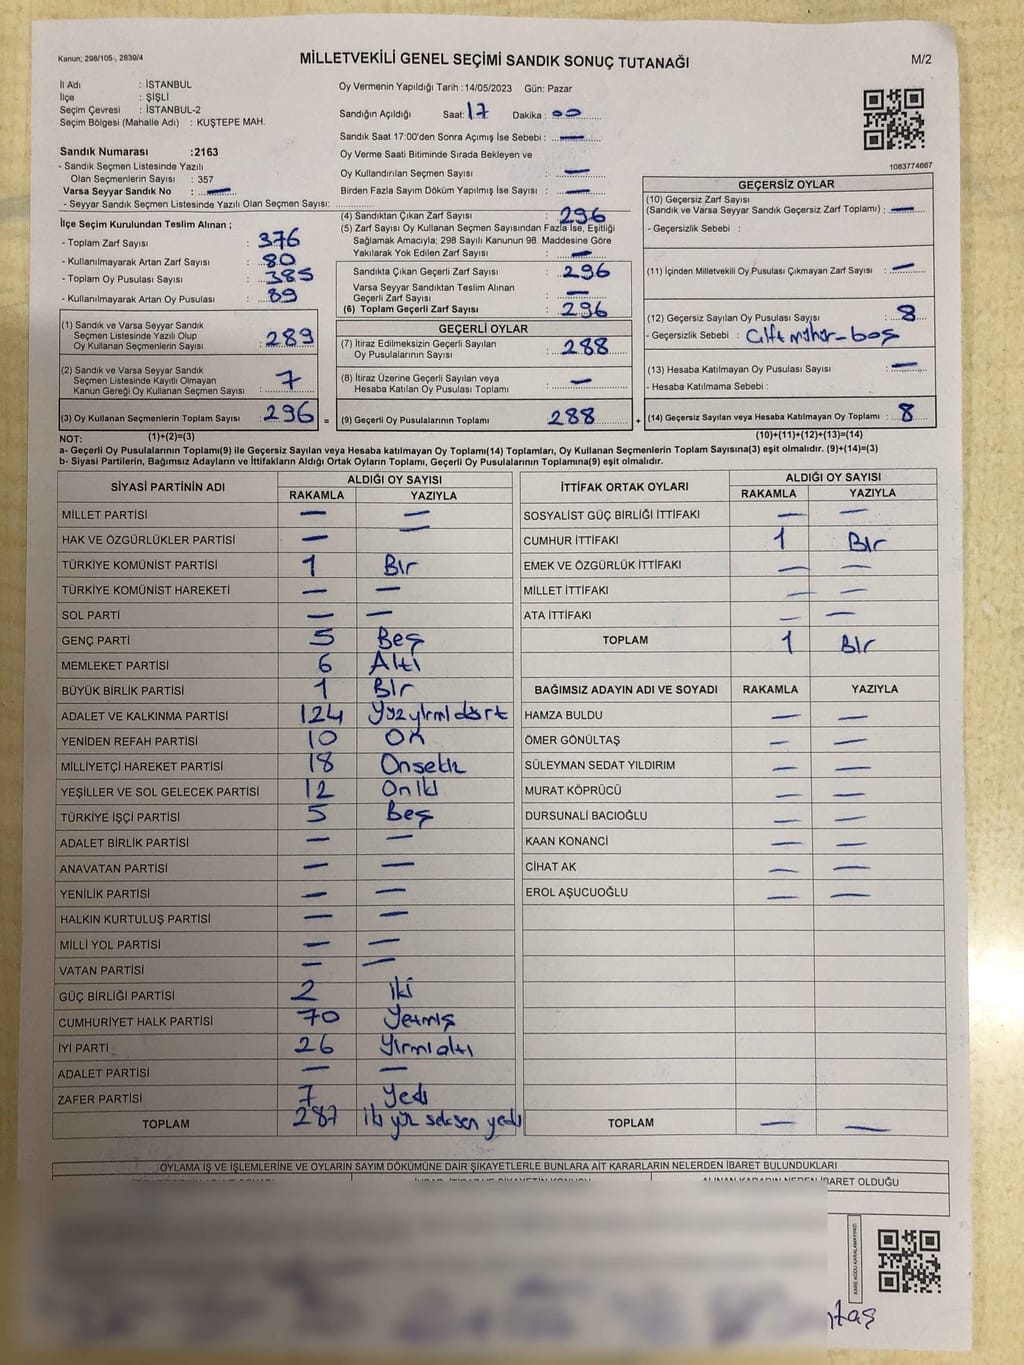 Kanun; 298/105-, 2839/4
MİLLETVEKİLİ GENEL SEÇİMİ SANDIK SONUÇ TUTANAĞI
M/2
İl Adı : İSTANBUL
İlçe : ŞİŞLİ
Seçim Çevresi : İSTANBUL-2
Seçim Bölgesi (Mahalle Adı) : KUŞTEPE MAH.
Sandık Numarası :2163
- Sandık Seçmen Listesinde Yazılı
Olan Seçmenlerin Sayısı : 357
Varsa Seyyar Sandık No : —
- Seyyar Sandık Seçmen Listesinde Yazılı Olan Seçmen Sayısı:
Oy Vermenin Yapıldığı Tarih :14/05/2023 Gün: Pazar
Sandığın Açıldığı Saat: 17 Dakika : 00
Sandık Saat 17:00'den Sonra Açımış İse Sebebi : —
Oy Verme Saati Bitiminde Sırada Bekleyen ve
Oy Kullandırılan Seçmen Sayısı : —
Birden Fazla Sayım Döküm Yapılmış İse Sayısı : —
1083774667
İlçe Seçim Kurulundan Teslim Alınan ;
- Toplam Zarf Sayısı : 376
- Kullanılmayarak Artan Zarf Sayısı : 80
- Toplam Oy Pusulası Sayısı : 385
- Kullanılmayarak Artan Oy Pusulası : 89
(1) Sandık ve Varsa Seyyar Sandık
Seçmen Listesinde Yazılı Olup
Oy Kullanan Seçmenlerin Sayısı : 289
(2) Sandık ve Varsa Seyyar Sandık
Seçmen Listesinde Kayıtlı Olmayan
Kanun Gereği Oy Kullanan Seçmen Sayısı : 7
(3) Oy Kullanan Seçmenlerin Toplam Sayısı : 296 =
(4) Sandıktan Çıkan Zarf Sayısı : 296
(5) Zarf Sayısı Oy Kullanan Seçmen Sayısından Fazla İse, Eşitliği
Sağlamak Amacıyla; 298 Sayılı Kanunun 98. Maddesine Göre
Yakılarak Yok Edilen Zarf Sayısı : —
Sandıkta Çıkan Geçerli Zarf Sayısı : 296
Varsa Seyyar Sandıktan Teslim Alınan
Geçerli Zarf Sayısı : —
(6) Toplam Geçerli Zarf Sayısı : 296
GEÇERLİ OYLAR
(7) İtiraz Edilmeksizin Geçerli Sayılan
Oy Pusulalarının Sayısı : 288
(8) İtiraz Üzerine Geçerli Sayılan veya
Hesaba Katılan Oy Pusulası Toplamı : —
(9) Geçerli Oy Pusulalarının Toplamı : 288 +
GEÇERSİZ OYLAR
(10) Geçersiz Zarf Sayısı
(Sandık ve Varsa Seyyar Sandık Geçersiz Zarf Toplamı) : —
- Geçersizlik Sebebi :
(11) İçinden Milletvekili Oy Pusulası Çıkmayan Zarf Sayısı : —
(12) Geçersiz Sayılan Oy Pusulası Sayısı : 8
- Geçersizlik Sebebi : Çift mühür-boş
(13) Hesaba Katılmayan Oy Pusulası Sayısı : —
- Hesaba Katılmama Sebebi :
(14) Geçersiz Sayılan veya Hesaba Katılmayan Oy Toplamı : 8
NOT: (1)+(2)=(3) (10)+(11)+(12)+(13)=(14)
a- Geçerli Oy Pusulalarının Toplamı(9) ile Geçersiz Sayılan veya Hesaba katılmayan Oy Toplamı(14) Toplamları, Oy Kullanan Seçmenlerin Toplam Sayısına(3) eşit olmalıdır. (9)+(14)=(3)
b- Siyasi Partilerin, Bağımsız Adayların ve İttifakların Aldığı Ortak Oyların Toplamı, Geçerli Oy Pusulalarının Toplamına(9) eşit olmalıdır.
SİYASİ PARTİNİN ADI ALDIĞI OY SAYISI
RAKAMLA YAZIYLA
MİLLET PARTİSİ — —
HAK VE ÖZGÜRLÜKLER PARTİSİ — —
TÜRKİYE KOMÜNİST PARTİSİ 1 Bir
TÜRKİYE KOMÜNİST HAREKETİ — —
SOL PARTİ — —
GENÇ PARTİ 5 Beş
MEMLEKET PARTİSİ 6 Altı
BÜYÜK BİRLİK PARTİSİ 1 Bir
ADALET VE KALKINMA PARTİSİ 124 Yüzyirmidört
YENİDEN REFAH PARTİSİ 10 On
MİLLİYETÇİ HAREKET PARTİSİ 18 Onsekiz
YEŞİLLER VE SOL GELECEK PARTİSİ 12 Oniki
TÜRKİYE İŞÇİ PARTİSİ 5 Beş
ADALET BİRLİK PARTİSİ — —
ANAVATAN PARTİSİ — —
YENİLİK PARTİSİ — —
HALKIN KURTULUŞ PARTİSİ — —
MİLLİ YOL PARTİSİ — —
VATAN PARTİSİ — —
GÜÇ BİRLİĞİ PARTİSİ 2 iki
CUMHURİYET HALK PARTİSİ 70 Yetmiş
İYİ PARTİ 26 Yirmialtı
ADALET PARTİSİ — —
ZAFER PARTİSİ 7 Yedi
TOPLAM 287 iki yüz seksen yedi
İTTİFAK ORTAK OYLARI ALDIĞI OY SAYISI
RAKAMLA YAZIYLA
SOSYALİST GÜÇ BİRLİĞİ İTTİFAKI — —
CUMHUR İTTİFAKI 1 Bir
EMEK VE ÖZGÜRLÜK İTTİFAKI — —
MİLLET İTTİFAKI — —
ATA İTTİFAKI — —
TOPLAM 1 Bir
BAĞIMSIZ ADAYIN ADI VE SOYADI RAKAMLA YAZIYLA
HAMZA BULDU — —
ÖMER GÖNÜLTAŞ — —
SÜLEYMAN SEDAT YILDIRIM — —
MURAT KÖPRÜCÜ — —
DURSUNALİ BACIOĞLU — —
KAAN KONANCİ — —
CİHAT AK — —
EROL AŞUCUOĞLU — —
TOPLAM — —
OYLAMA İŞ VE İŞLEMLERİNE VE OYLARIN SAYIM DÖKÜMÜNE DAİR ŞİKAYETLERLE BUNLARA AİT KARARLARIN NELERDEN İBARET BULUNDUKLARI
ALINAN KARARIN NEDEN İBARET OLDUĞU
KARE KODU KARALAMAYINIZ!